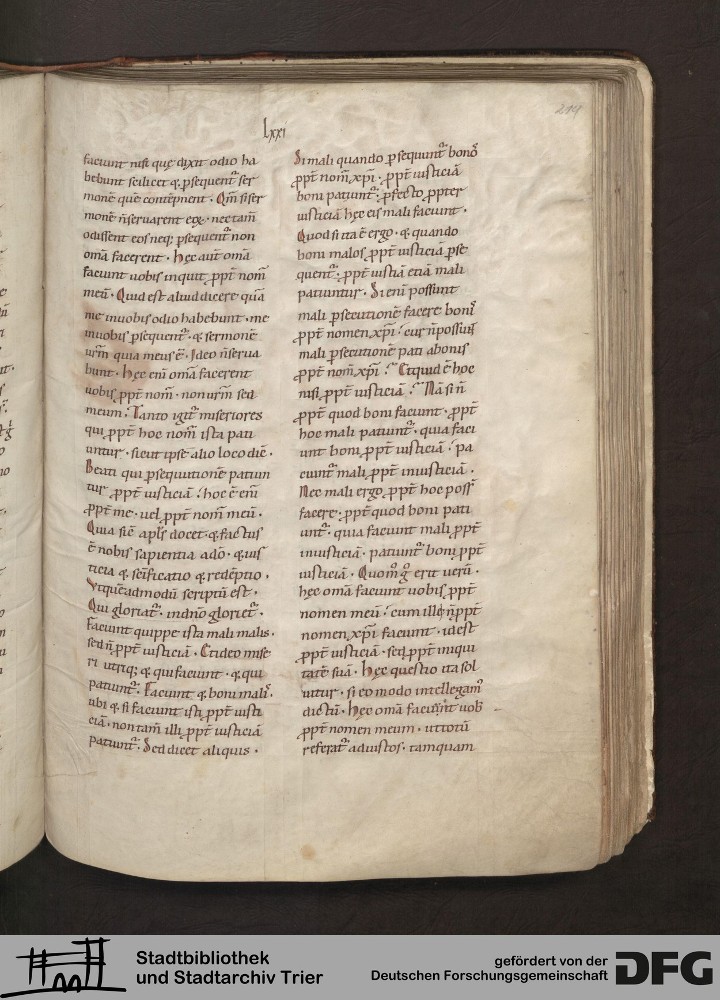 214
Lxxi
faciunt nisi quę dixit odio ha
bebunt scilicet & ꝑsequent᷑ ser
monē quē contēpnent · Qm̄ si ser
monē n̄ seruarent eiꝰ · nec tam̄
odissent eos neq; ꝑsequent᷑ non
om̄a facerent · Hęc aut̄ om̄a
faciunt uobis inquit ꝓpt̄ nom̄
meū · Quid est aliud dicere quā
me in uobis odio habebunt · me
in uobis ꝑsequent᷑ · & sermonē
ur̄m quia meus ē · Ideo n̄ serua
bunt · Hęc eni om̄a facerent
uobis ꝓpt̄ nom̄ · non ur̄m sed
meum · Tanto igit᷑ miseriores
qui ꝓpt̄ hoc nom̄ ista pati
untur · sicut ipse alio loco dic̄ ·
Beati qui ꝑsequutionē patiun
tur ꝓpt̄ iusticiā · hoc ē eni
ꝓpt̄ me · uel ꝓpt̄ nom̄ meū ·
Quia sic̄ apl̄s docet · & factus
ē nobis sapientia a dō · & ius
ticia & sc̄ificatio & redēptio ·
Vt quēadmodū scriptū est ·
Qui gloriat᷑ · in dn̄o gloriet᷑ ·
Faciunt quippe ista mali malis ·
sed n̄ ꝓpt̄ iusticiā · Et ideo mise
ri utriq; & qui faciunt · & qui
patiunt᷑ · Faciunt & boni malis ·
ubi & si faciunt isti ꝓpt̄ iusti
ciā · non tam̄ illi ꝓpt̄ iusticiā
patiunt᷑ · Sed dicet aliquis ·
Si mali quando ꝑsequunt᷑ bonos
ꝓpt̄ nom̄ xp̄i · ꝓpt̄ iusticiā
boni patiunt᷑ · ꝓfecto ꝓpter
iusticiā hęc eis mali faciunt ·
Quod si ita ē ergo · & quando
boni malos ꝓpt̄ iusticiā ꝑse
quent᷑ · ꝓpt̄ iustiā etiā mali
patiuntur · Si eni possunt
mali ꝑsecutionē facere bonis
ꝓpt̄ nomen xp̄i · cur n̄ possunt
mali ꝑsecutionē pati a bonis
ꝓpt̄ nom̄ xp̄i · Et quid ē hoc
nisi ꝓpt̄ iusticiā · Nā si n̄
ꝓpt̄ quod boni faciunt · ꝓpt̄
hoc mali patiunt᷑ · quia faci
unt boni ꝓpt̄ iusticiā · pa
ciunt᷑ mali ꝓpt̄ iniusticiā ·
Nec mali ergo ꝓpt̄ hoc poss̄
facere · ꝓpt̄ quod boni pati
unt᷑ · quia faciunt mali ꝓpt̄
iniusticiā · patiunt᷑ boni ꝓpt̄
iusticiā · Quom̊ g̊ erit uerū ·
hęc om̄a faciunt uobis ꝓpt̄
nomen meū · cum illi n̄ ꝓpt̄
nomen xp̄i faciunt · id est
ꝓpt̄ iusticiā · sed ꝓpt̄ iniqui
tatē suā · Hęc questio ita sol
uitur · si eo modo intellegam᷒
dictū · Hęc om̄a facient uob̄
ꝓpt̄ nomen meum · ut totū
referat᷑ ad iustos · tamquam
Stadtbibliothek
und Stadtarchiv Trier
gefördert von der
Deutschen Forschungsgemeinschaft
DFG